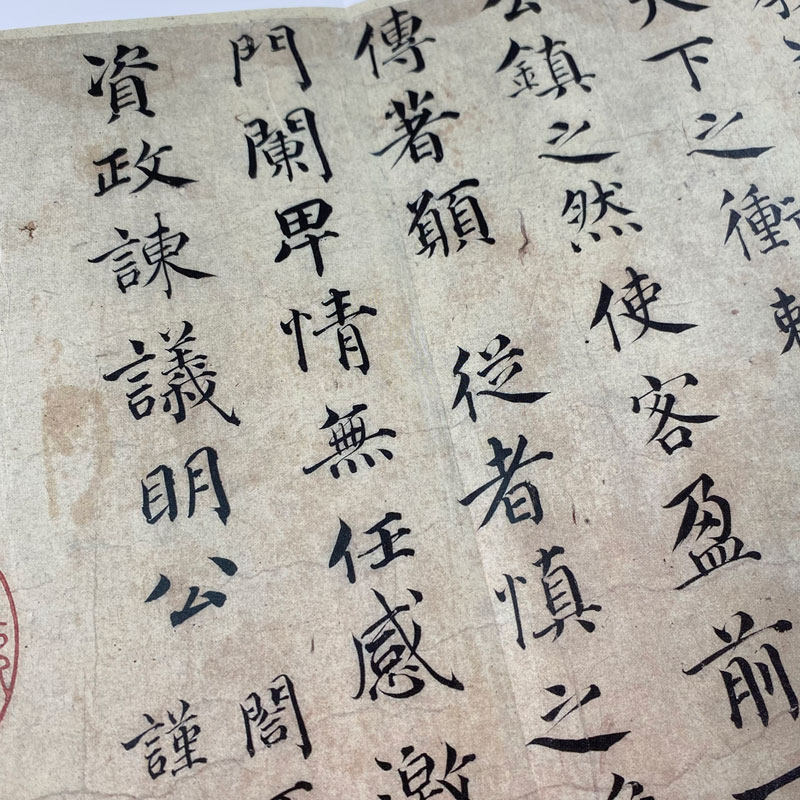 天下之衝
公鎮之然使客盈前
傳著願 從者慎之
門闌卑情無任感激
資政諫議明公 閤
謹